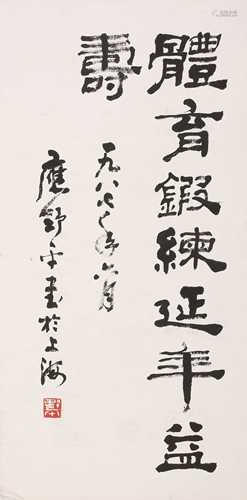 體育鍛練延年益
壽
一九八七年六月
應野平書於上海